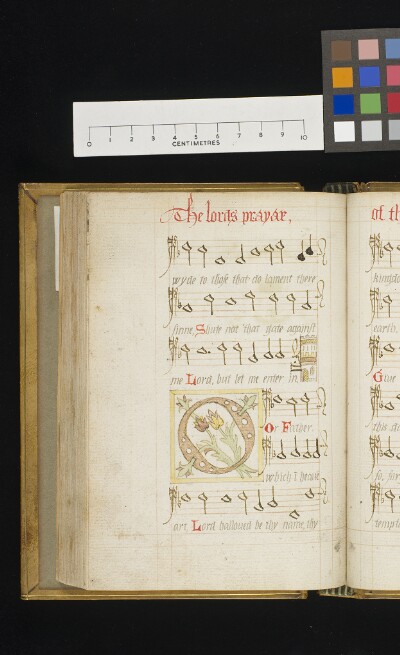 0 1 2 3 4 5 6 7 8 9 10
CENTIMETRES
The lords prayar,
wyde to those that do lament there
sinne, Shute not that gate against
me Lord, but let me enter in.
Or Father
which i heaue
art, Lord hallowed be thy name, thy
of th
kingdo
earth.
Giue
this
so,
tempta